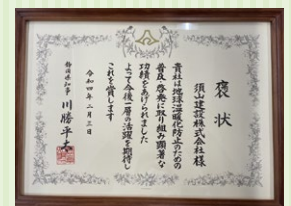 褒状
須山建設株式会社様
貴社は地球温暖化防止のための
普及・啓発に取り組み顕著な
功績をあげられました
よって今後一層の活躍を期待し
これを賞します
令和四年二月三日
静岡県知事 川勝平太